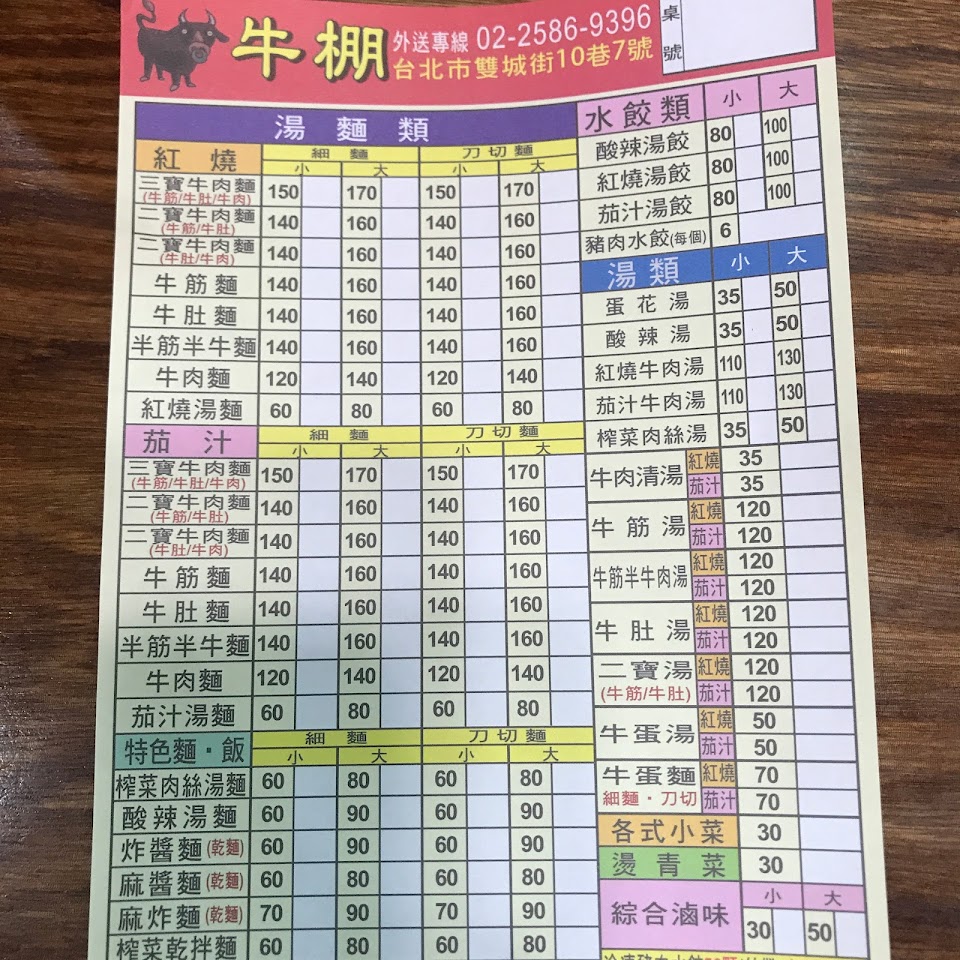 牛棚 外送專線 02-2586-9396
台北市雙城街10巷7號
桌號
湯麵類
紅燒 細麵 刀切麵
小 大 小 大
三寶牛肉麵 150 170 150 170
(牛筋/牛肚/牛肉)
二寶牛肉麵 140 160 140 160
(牛筋/牛肚)
二寶牛肉麵 140 160 140 160
(牛肚/牛肉)
牛筋麵 140 160 140 160
牛肚麵 140 160 140 160
半筋半牛麵 140 160 140 160
牛肉麵 120 140 120 140
紅燒湯麵 60 80 60 80
茄汁 細麵 刀切麵
小 大 小 大
三寶牛肉麵 150 170 150 170
(牛筋/牛肚/牛肉)
二寶牛肉麵 140 160 140 160
(牛筋/牛肚)
二寶牛肉麵 140 160 140 160
(牛肚/牛肉)
牛筋麵 140 160 140 160
牛肚麵 140 160 140 160
半筋半牛麵 140 160 140 160
牛肉麵 120 140 120 140
茄汁湯麵 60 80 60 80
特色麵・飯 細麵 刀切麵
小 大 小 大
榨菜肉絲湯麵 60 80 60 80
酸辣湯麵 60 90 60 90
炸醬麵(乾麵) 60 90 60 90
麻醬麵(乾麵) 60 80 60 80
麻炸麵(乾麵) 70 90 70 90
榨菜乾拌麵 60 80 60 80
水餃類 小 大
酸辣湯餃 80 100
紅燒湯餃 80 100
茄汁湯餃 80 100
豬肉水餃(每個) 6
湯類 小 大
蛋花湯 35 50
酸辣湯 35 50
紅燒牛肉湯 110 130
茄汁牛肉湯 110 130
榨菜肉絲湯 35 50
牛肉清湯 紅燒 35
茄汁 35
牛筋湯 紅燒 120
茄汁 120
牛筋半牛肉湯 紅燒 120
茄汁 120
牛肚湯 紅燒 120
茄汁 120
二寶湯 紅燒 120
(牛筋/牛肚) 茄汁 120
牛蛋湯 紅燒 50
茄汁 50
牛蛋麵 紅燒 70
細麵・刀切 茄汁 70
各式小菜 30
燙青菜 30
綜合滷味 小 大
30 50